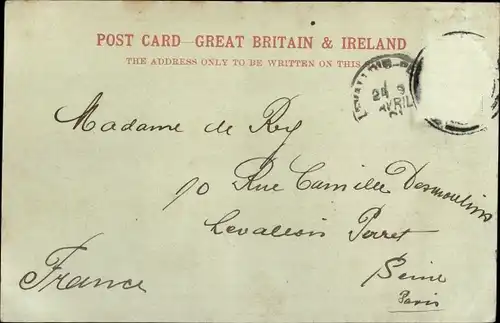 POST CARD—GREAT BRITAIN & IRELAND
THE ADDRESS ONLY TO BE WRITTEN ON THIS
24
AVRIL
Madame de Rey
70 Rue Camille Desmoulins
Levallois Perret
Seine
Paris
France